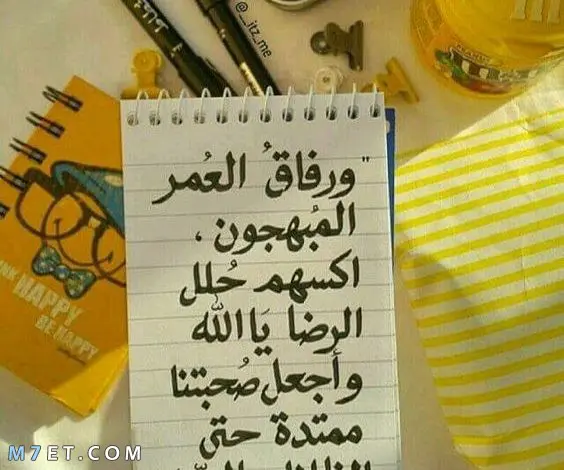 @__itz_me
"ورفاقُ العُمر
المُبهجون ،
اكسهم حُلل
الرضا يَا الله
وأجعل صُحبتنا
ممتدة حتى
THINK HAPPY
BE HAPPY
M7ET.COM